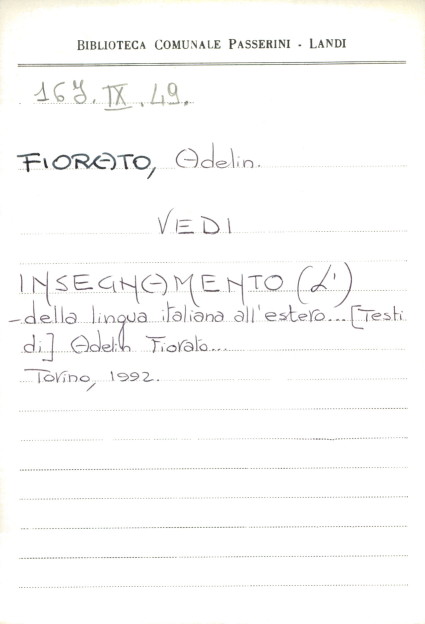 BIBLIOTECA COMUNALE PASSERINI - LANDI
16J.IX.49.
FIORATO, Adelin.
VEDI
INSEGNAMENTO (L')
-della lingua italiana all'estero...[Testi
di] Adelin Fiorato...
Torino, 1992.